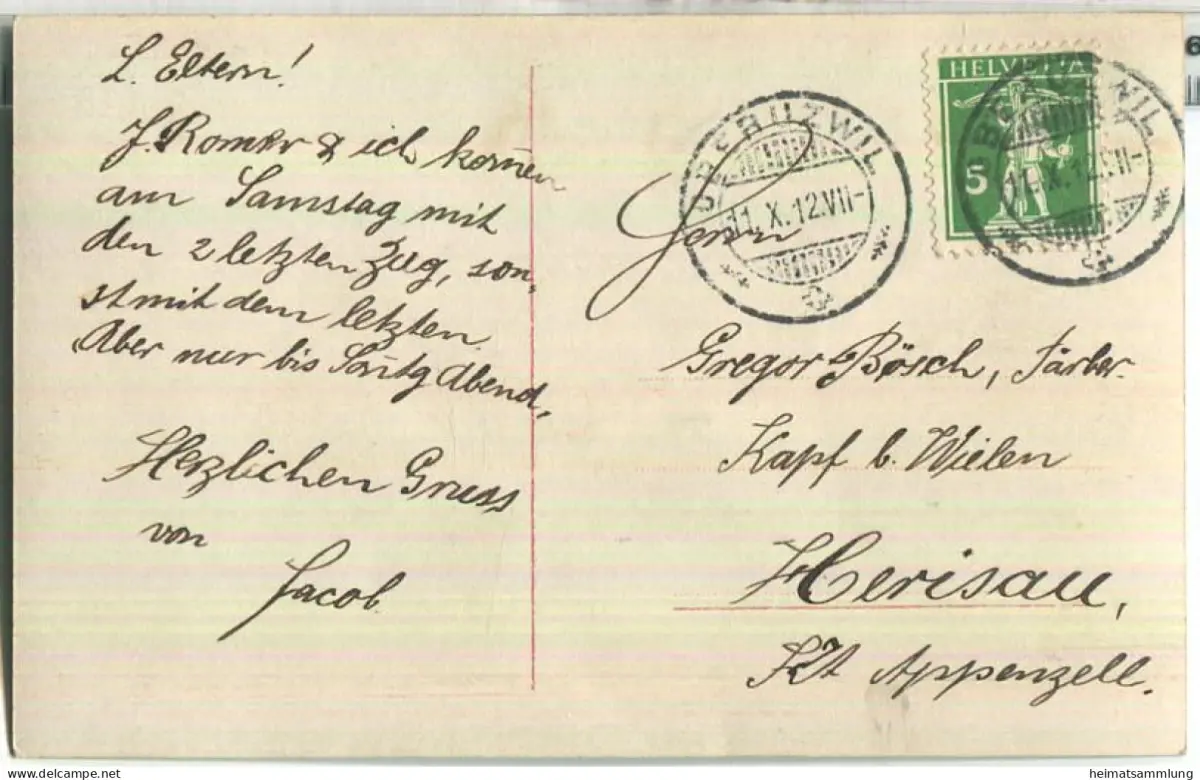 L. Eltern!
J. Romer & ich komen
am Samstag mit
den 2 letzten Zug, son-
st mit dem letzten.
Aber nur bis Sontg Abend,
Herzlichen Gruss
von
Jacob.
HELVETIA
5
OBERUZWIL
11.X.12.VII-
OBERUZWIL
11.X.12.VII-
Herrn
Gregor Bösch, Färber.
Kapf b. Wielen
Herisau,
Kt Appenzell.
6
www.delcampe.net
heimatsammlung